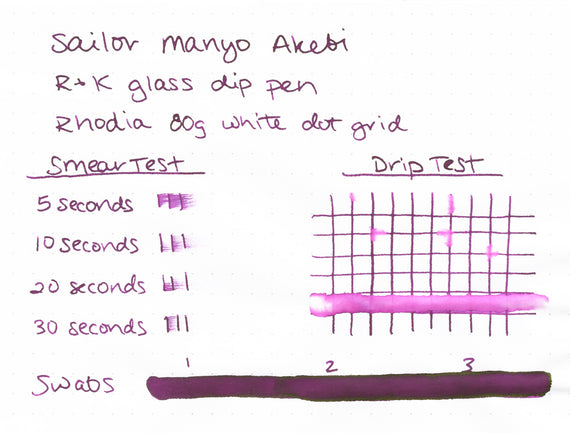 Sailor Manyo Akebi
R+K glass dip pen
Rhodia 80g white dot grid
Smear Test
Drip Test
5 seconds
10 seconds
20 seconds
30 seconds
1 2 3
Swabs